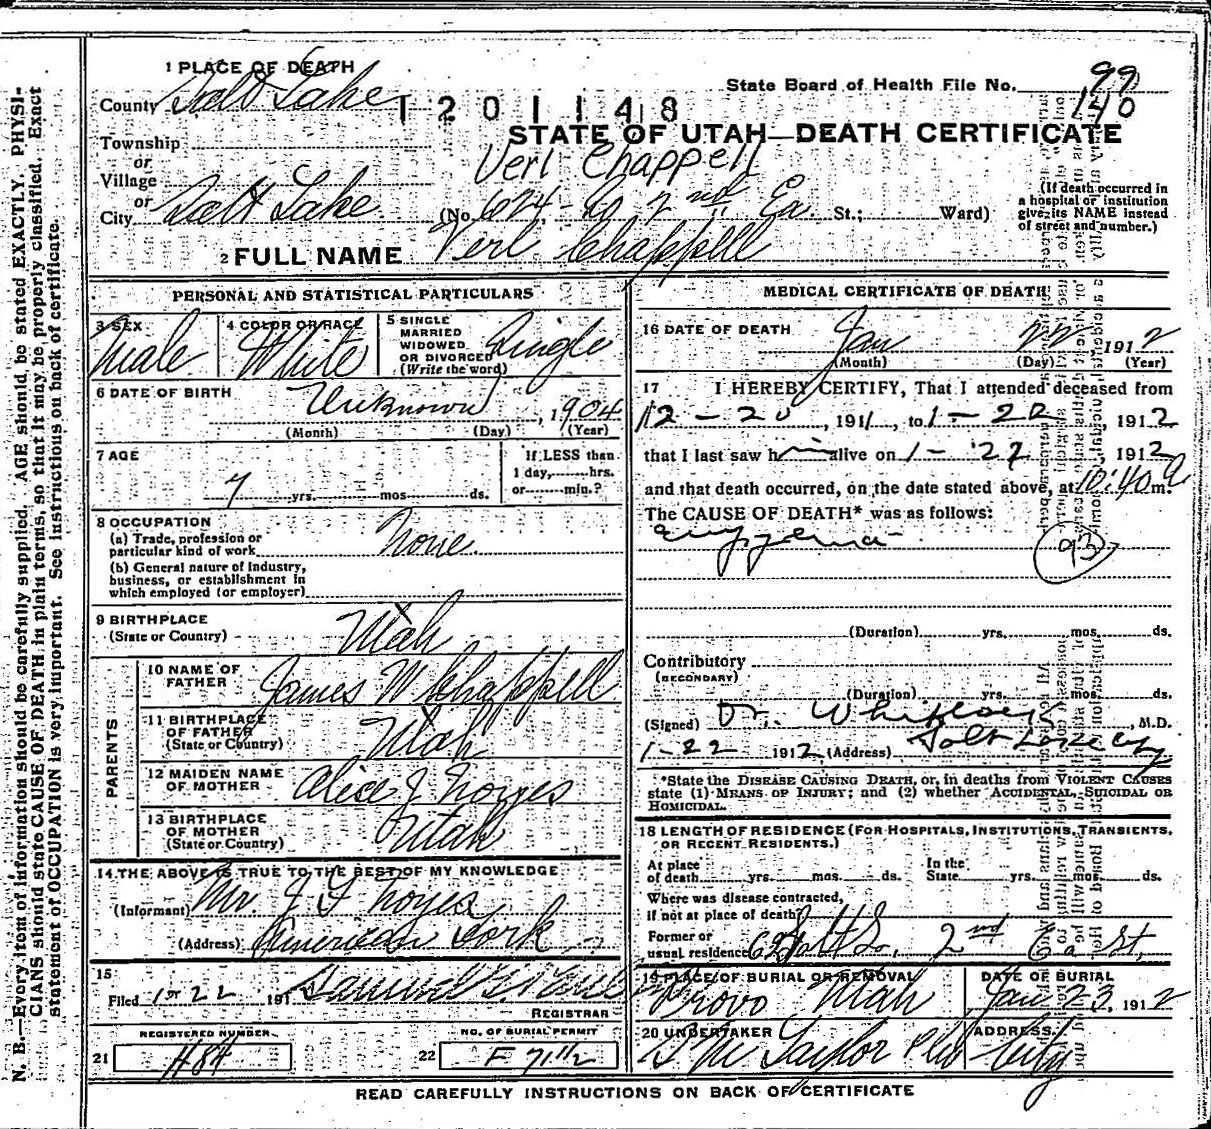 N. B.—Every item of information should be carefully supplied. AGE should be stated EXACTLY. PHYSI-
CIANS should state CAUSE OF DEATH in plain terms, so that it may be properly classified. Exact
statement of OCCUPATION is very important. See instructions on back of certificate.
1 PLACE OF DEATH
County Salt Lake
1201148
State Board of Health File No. 99
140
STATE OF UTAH—DEATH CERTIFICATE
Township
or
Village
or
Verl Chappell
City Salt Lake (No. 674 So 2nd Ea St.; Ward)
(If death occurred in
a hospital or institution
give its NAME instead
of street and number.)
2 FULL NAME Verl Chappell
PERSONAL AND STATISTICAL PARTICULARS
3 SEX
Male
4 COLOR OR RACE
White
5 SINGLE
MARRIED
WIDOWED
OR DIVORCED
(Write the word)
Single
6 DATE OF BIRTH Unknown, 1904
(Month) (Day) (Year)
7 AGE
7 yrs. mos. ds.
If LESS than
1 day, hrs.
or min.?
8 OCCUPATION
(a) Trade, profession or
particular kind of work None
(b) General nature of Industry,
business, or establishment in
which employed (or employer)
9 BIRTHPLACE
(State or Country) Utah
PARENTS
10 NAME OF
FATHER James W Chappell
11 BIRTHPLACE
OF FATHER
(State or Country) Utah
12 MAIDEN NAME
OF MOTHER Alice J Noyes
13 BIRTHPLACE
OF MOTHER
(State or Country) Utah
14 THE ABOVE IS TRUE TO THE BEST OF MY KNOWLEDGE
(Informant) Mr. J F Noyes
(Address) American Fork
15
Filed 1-22 191
REGISTRAR
REGISTERED NUMBER
21 H84
NO. OF BURIAL PERMIT
22 F 7112
MEDICAL CERTIFICATE OF DEATH
16 DATE OF DEATH
Jan 22 1912
(Month) (Day) (Year)
17 I HEREBY CERTIFY, That I attended deceased from
12-20, 1911, to 1-22 1912
that I last saw him alive on 1-22, 1912
and that death occurred, on the date stated above, at 10:40 a m.
The CAUSE OF DEATH* was as follows:
Empyema
93
(Duration) yrs. mos. ds.
Contributory
(SECONDARY)
(Duration) yrs. mos. ds.
(Signed) Dr. Whitlock, M.D.
1-22 1912 (Address) Salt Lake City
*State the DISEASE CAUSING DEATH, or, in deaths from VIOLENT CAUSES
state (1) MEANS OF INJURY; and (2) whether ACCIDENTAL, SUICIDAL OR
HOMICIDAL.
18 LENGTH OF RESIDENCE (FOR HOSPITALS, INSTITUTIONS, TRANSIENTS,
OR RECENT RESIDENTS.)
At place
of death yrs. mos. ds.
In the
State yrs. mos. ds.
Where was disease contracted,
if not at place of death?
Former or
usual residence So, 2nd Ea St,
19 PLACE OF BURIAL OR REMOVAL
Provo Utah
DATE OF BURIAL
Jan 23, 1912
20 UNDERTAKER
S M Taylor
ADDRESS
City
READ CAREFULLY INSTRUCTIONS ON BACK OF CERTIFICATE